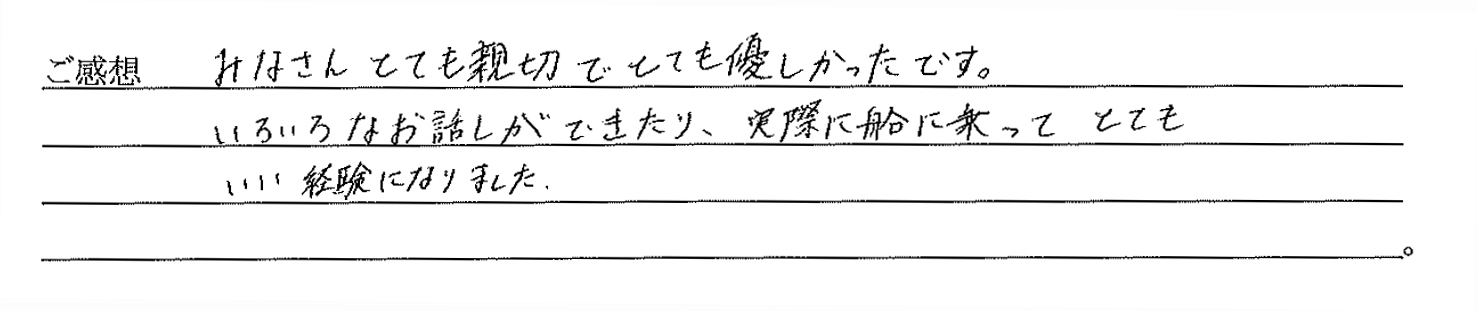 ご感想 みなさんとても親切でとても優しかったです。
いろいろなお話しができたり、実際に船に乗ってとても
いい経験になりました.
。